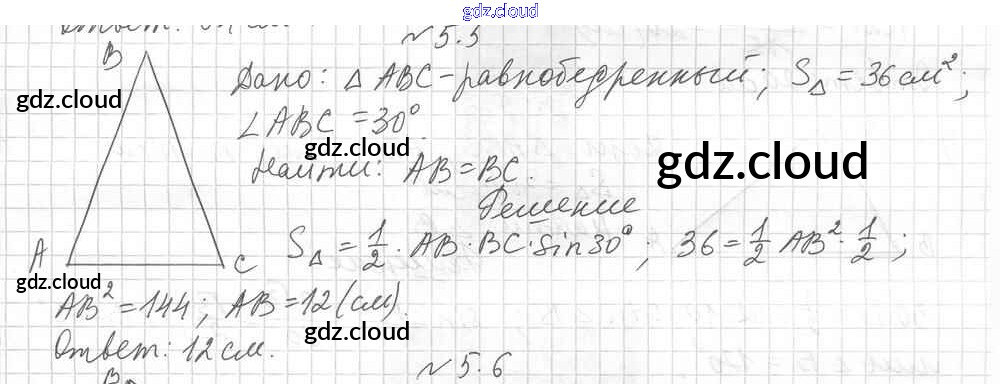 gdz.cloud
№5.5
B
Дано: △ ABC - равнобедренный; S△ = 36 см²;
gdz.cloud
∠ABC = 30°.
gdz.cloud
gdz.cloud
Найти: AB = BC.
Решение
S△ = 1/2 · AB · BC · sin30°; 36 = 1/2 AB² · 1/2;
A
C
gdz.cloud
AB² = 144; AB = 12 (см).
gdz.cloud
Ответ: 12 см.
№5.6
B